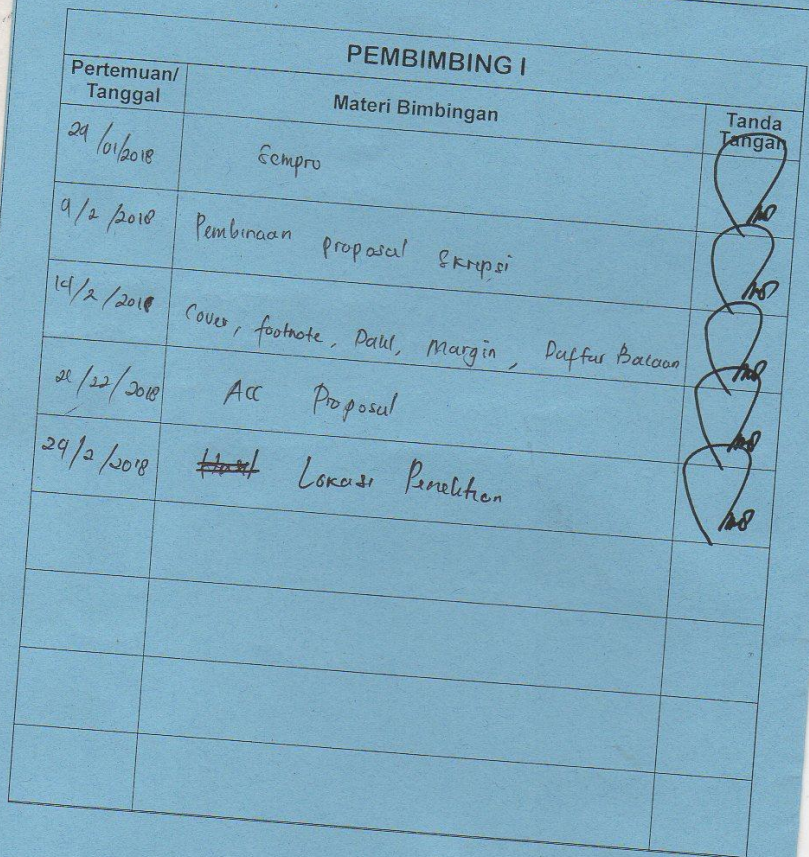 PEMBIMBING I
Pertemuan/ Tanggal Materi Bimbingan Tanda Tangan
29/01/2018 Sempro
9/2/2018 Pembinaan proposal Skripsi
14/2/2018 Cover, footnote, Dalil, Margin, Daftar Bacaan
/22/2018 Acc Proposal
29/2/2018 Lokasi Penelitian